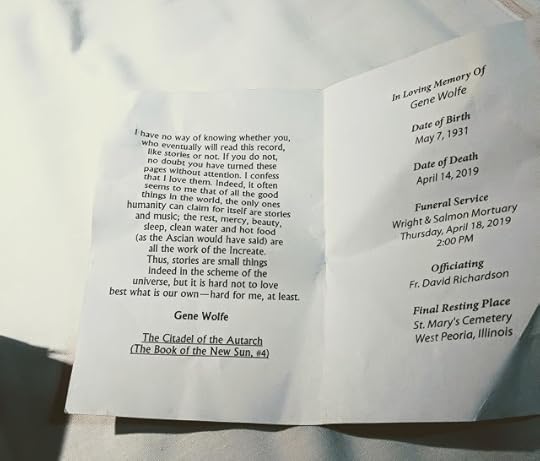 I have no way of knowing whether you,
who eventually will read this record,
like stories or not. If you do not,
no doubt you have turned these
pages without attention. I confess
that I love them. Indeed, it often
seems to me that of all the good
things in the world, the only ones
humanity can claim for itself are stories
and music; the rest, mercy, beauty,
sleep, clean water and hot food
(as the Ascian would have said) are
all the work of the Increate.
Thus, stories are small things
indeed in the scheme of the
universe, but it is hard not to love
best what is our own—hard for me, at least.
Gene Wolfe
The Citadel of the Autarch
(The Book of the New Sun, #4)
In Loving Memory Of
Gene Wolfe
Date of Birth
May 7, 1931
Date of Death
April 14, 2019
Funeral Service
Wright & Salmon Mortuary
Thursday, April 18, 2019
2:00 PM
Officiating
Fr. David Richardson
Final Resting Place
St. Mary's Cemetery
West Peoria, Illinois